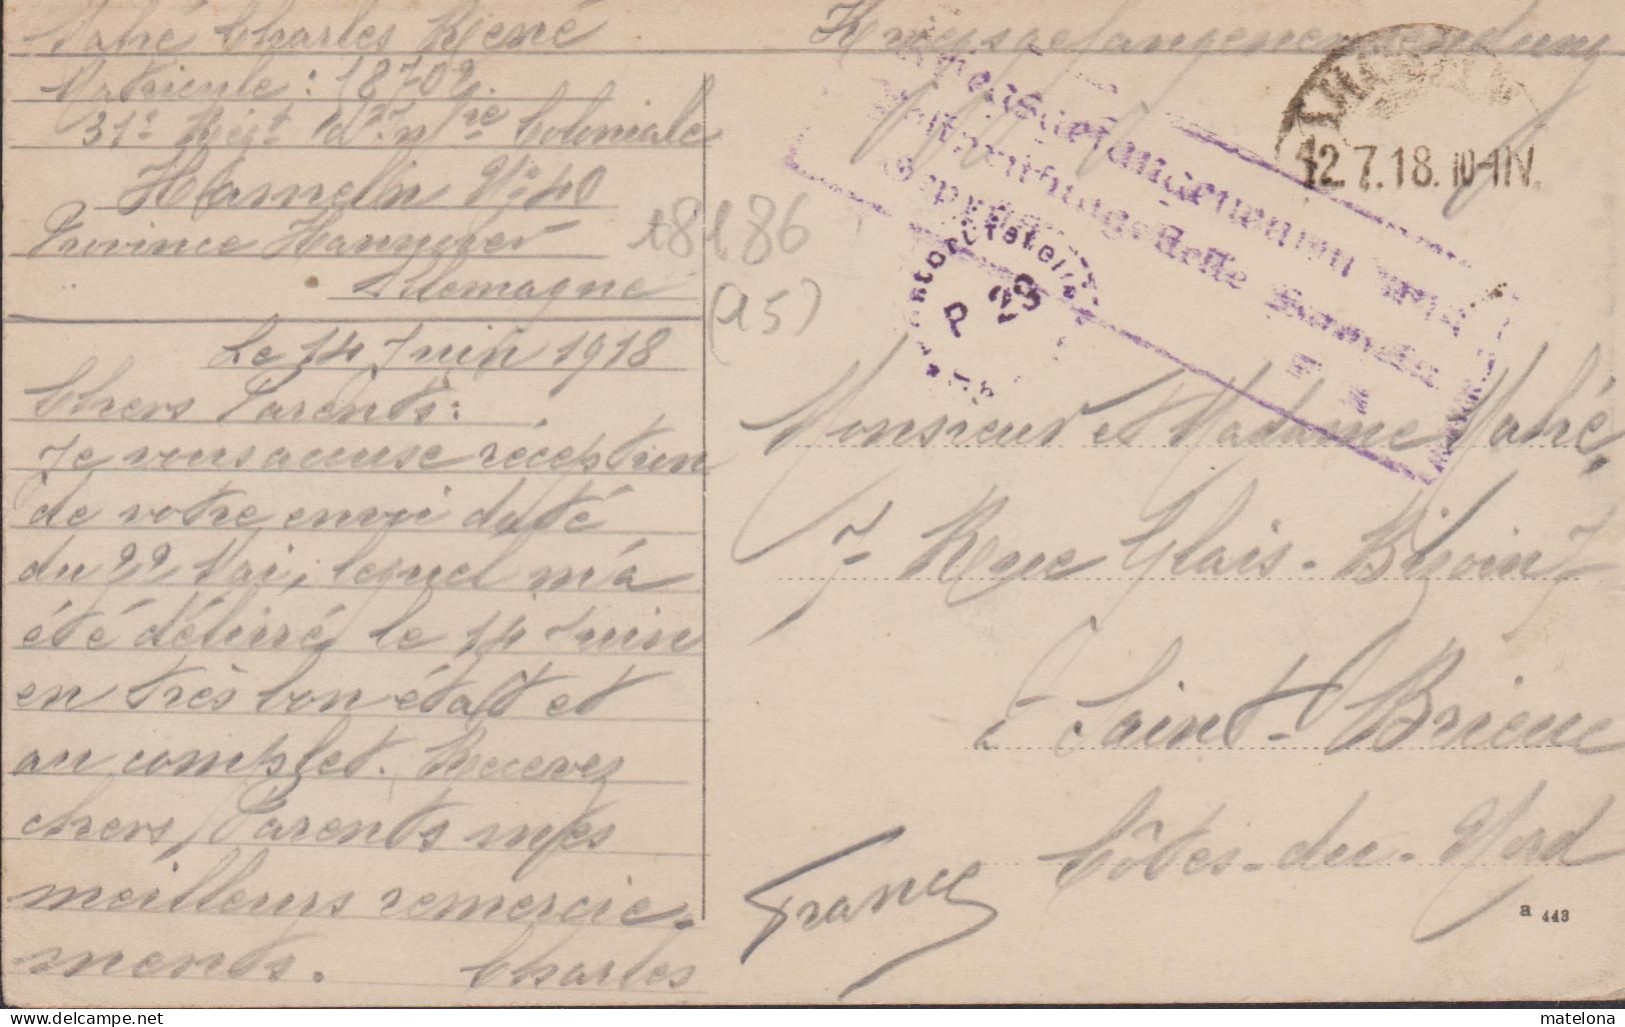 Mahé Charles René
Matricule : 18702.
31e Régt d'Inf.rie Coloniale
Hameln N: 40
Province Hannover
Allemagne
18186
(15)
Le 14 Juin 1918
Chers Parents:
Je vous accuse réception
de votre envoi daté
du 22 Mai, lequel m'a
été délivré le 14 Juin
en très bon état et
au complet. Recevez
chers Parents mes
meilleurs remercie-
ments. Charles
Kriegsgefangenensendung
12.7.18. 10-11V.
Kriegsgefangenen
Geprüft
P 28
Monsieur et Madame Mahé,
7 Rue Glais-Bizoin 7
à Saint-Brieuc
Côtes-du-Nord
France
a 443
matelona